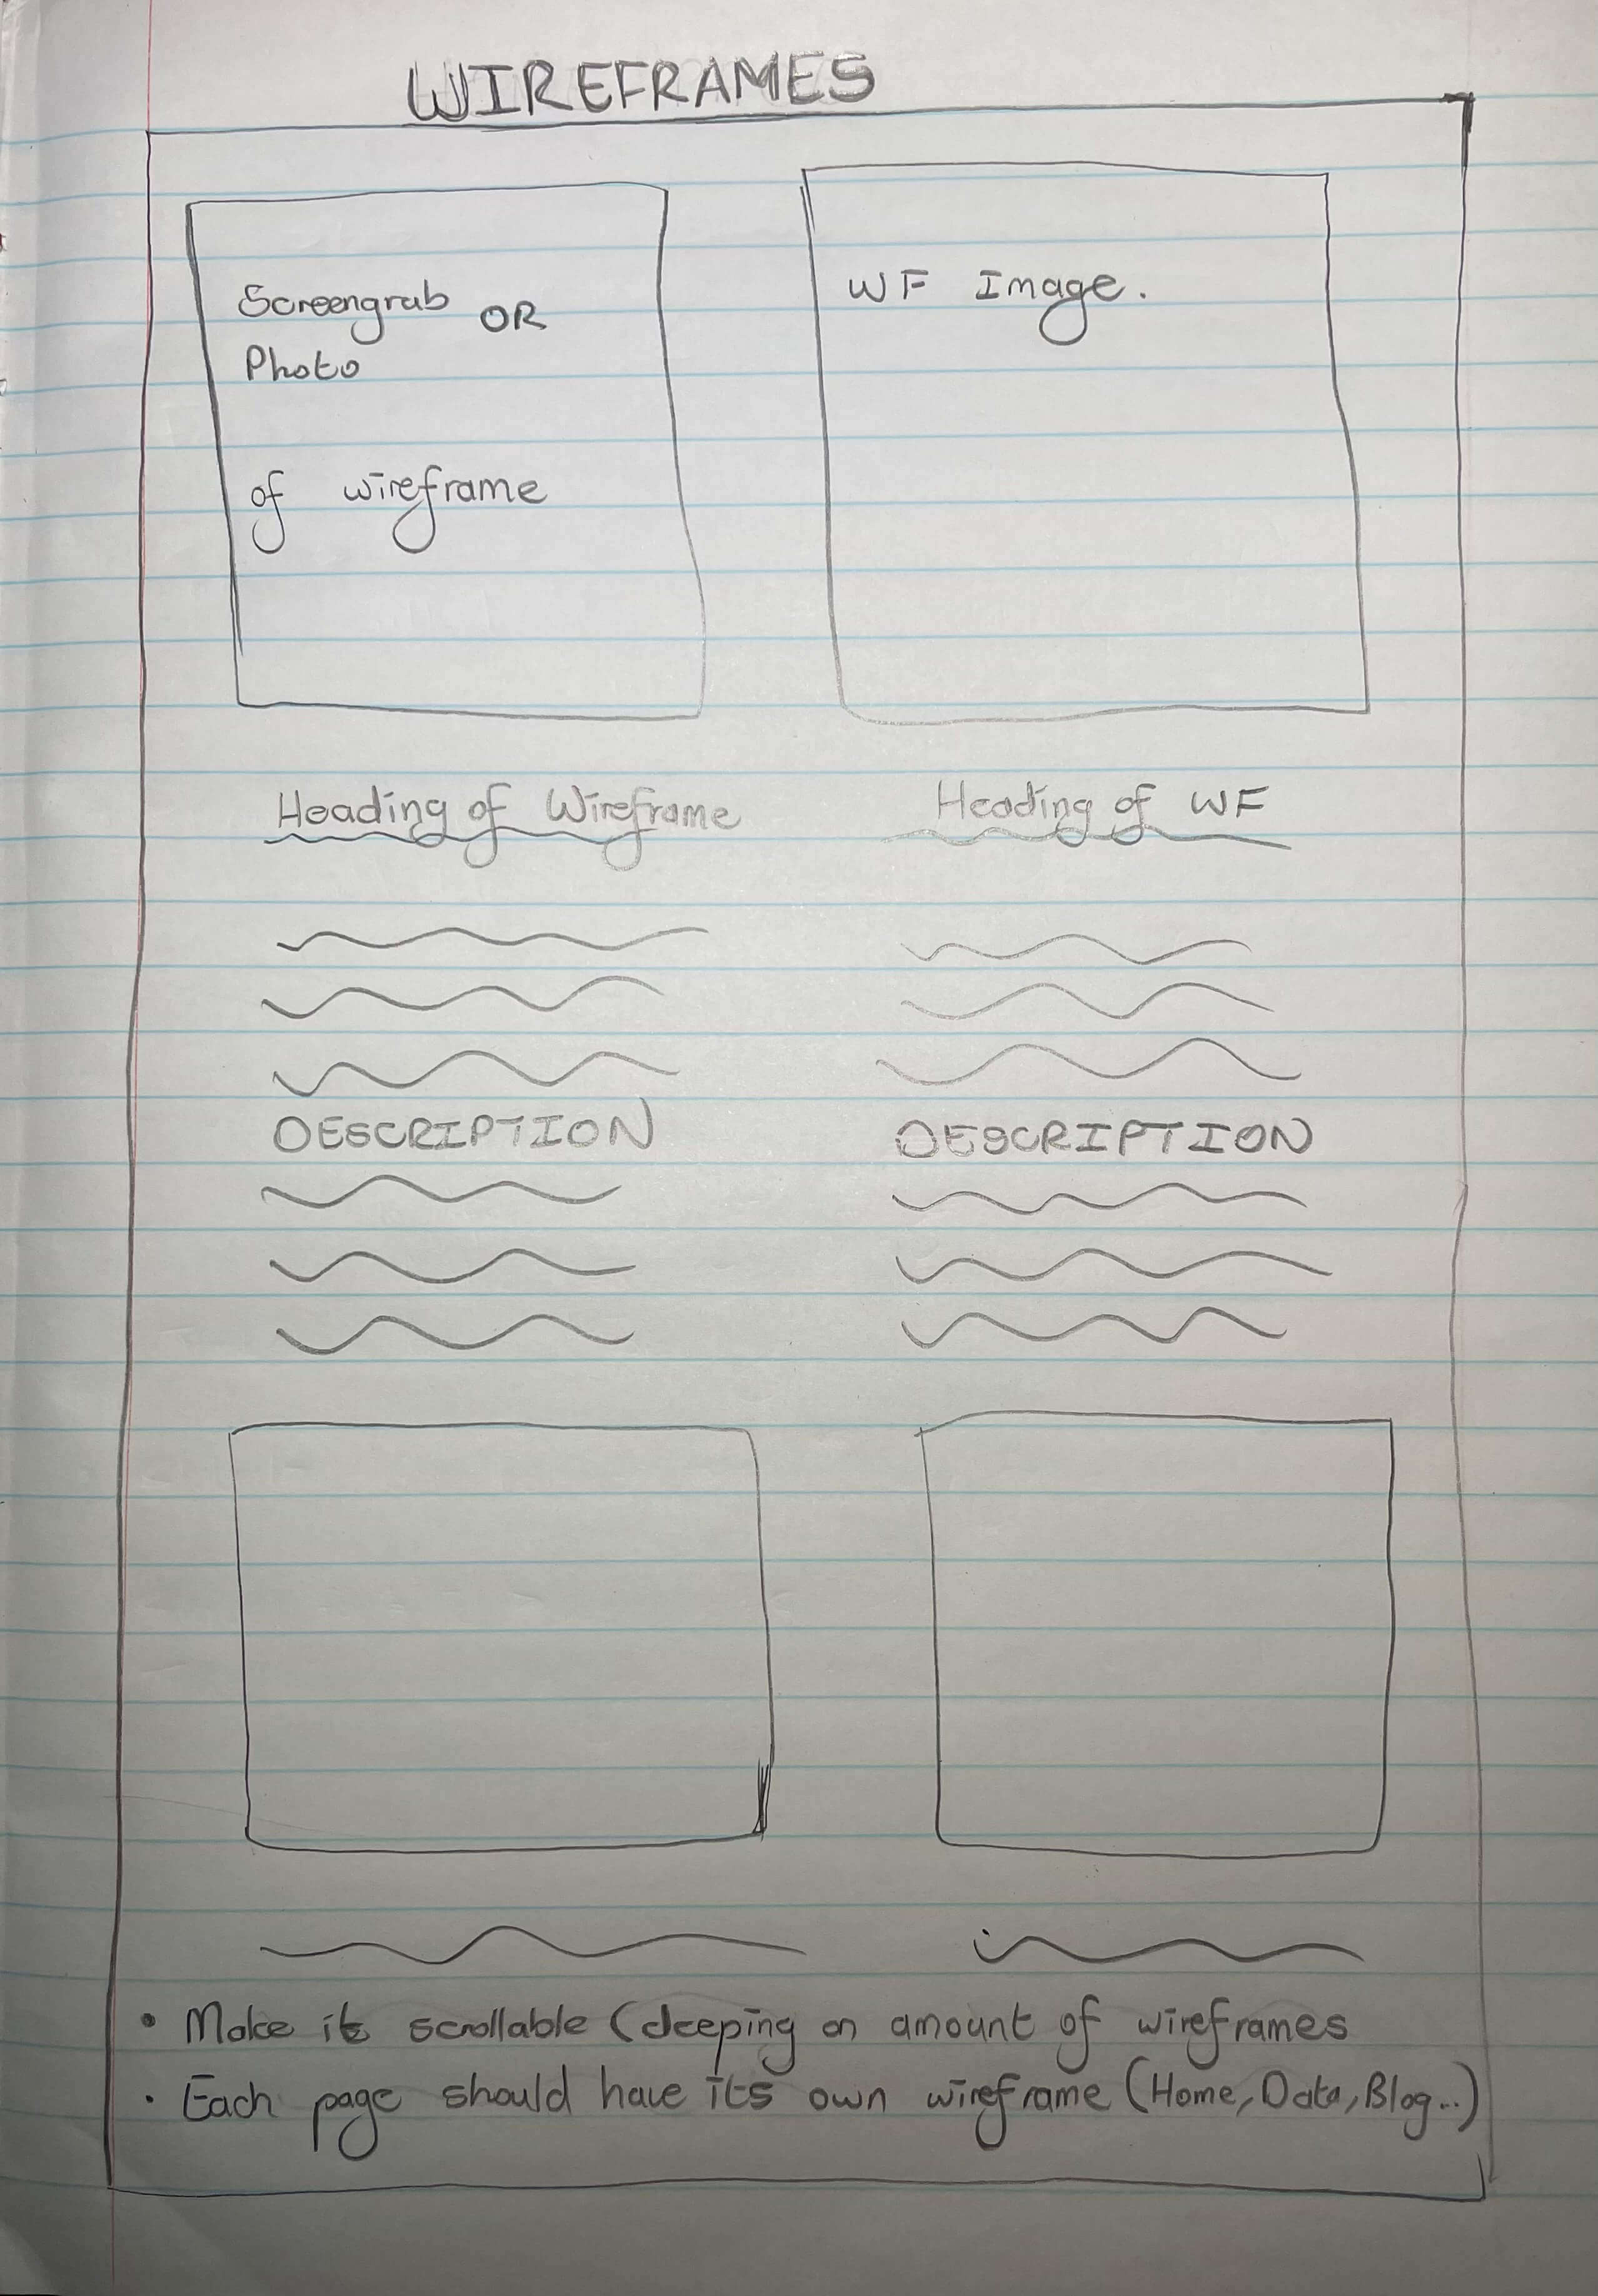 WIREFRAMES
Screengrab OR
Photo
of wireframe
WF Image.
Heading of Wireframe
Heading of WF
DESCRIPTION
DESCRIPTION
• Make it scrollable (deeping on amount of wireframes
• Each page should have its own wireframe (Home, Data, Blog..)